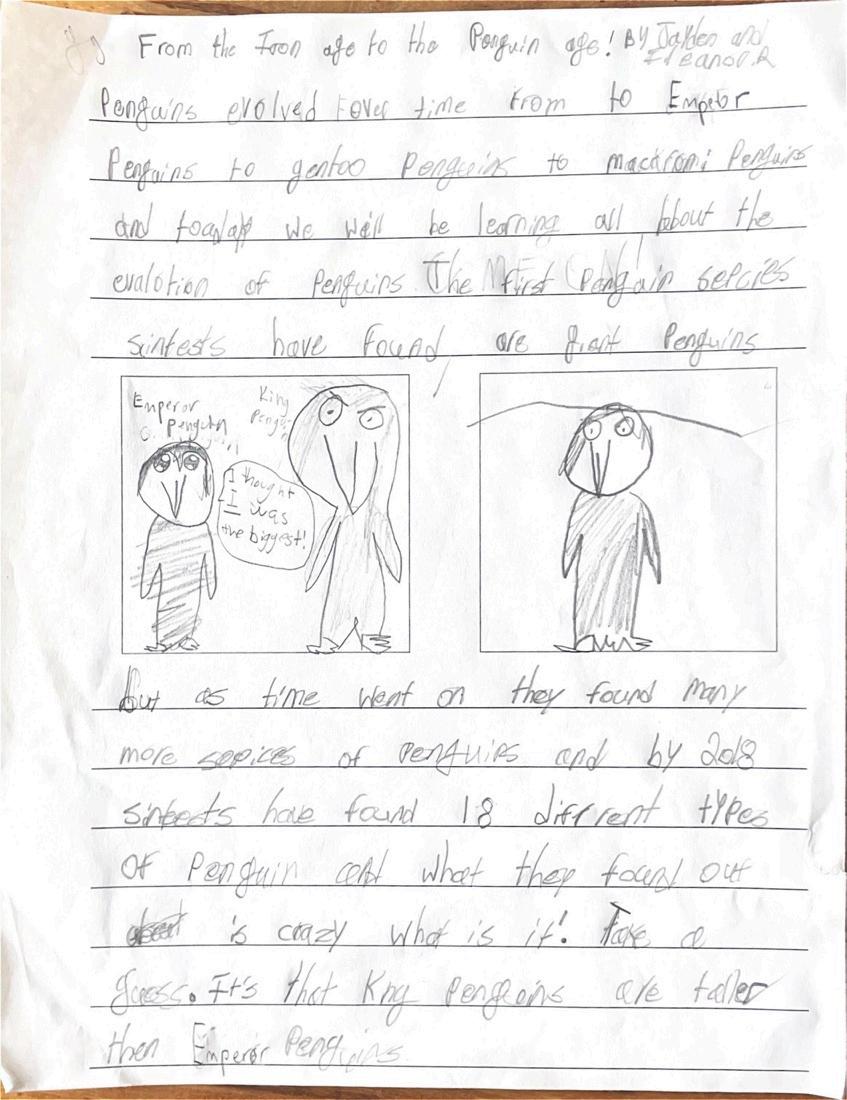 From the Iron age to the Penguin age! BY Jayden and
Eleanor.R
Penguins evolved over time from to Emperor
Penguins to gentoo Penguins to mackromi Penguins
and we will be learning all about the
evalotion of Penguins. The first Penguin sercies
sintests have found are giant Penguins
Emperor
Penguin
King
Penguin
I thought
I was
the biggest!
But as time went on they found many
more sepices of Penguins and by 2018
sintests have found 18 diffrent types
of Penguin and what they found out
is crazy what is it! Take a
guess. It's that King Penguins are taller
then Emperor Penguins